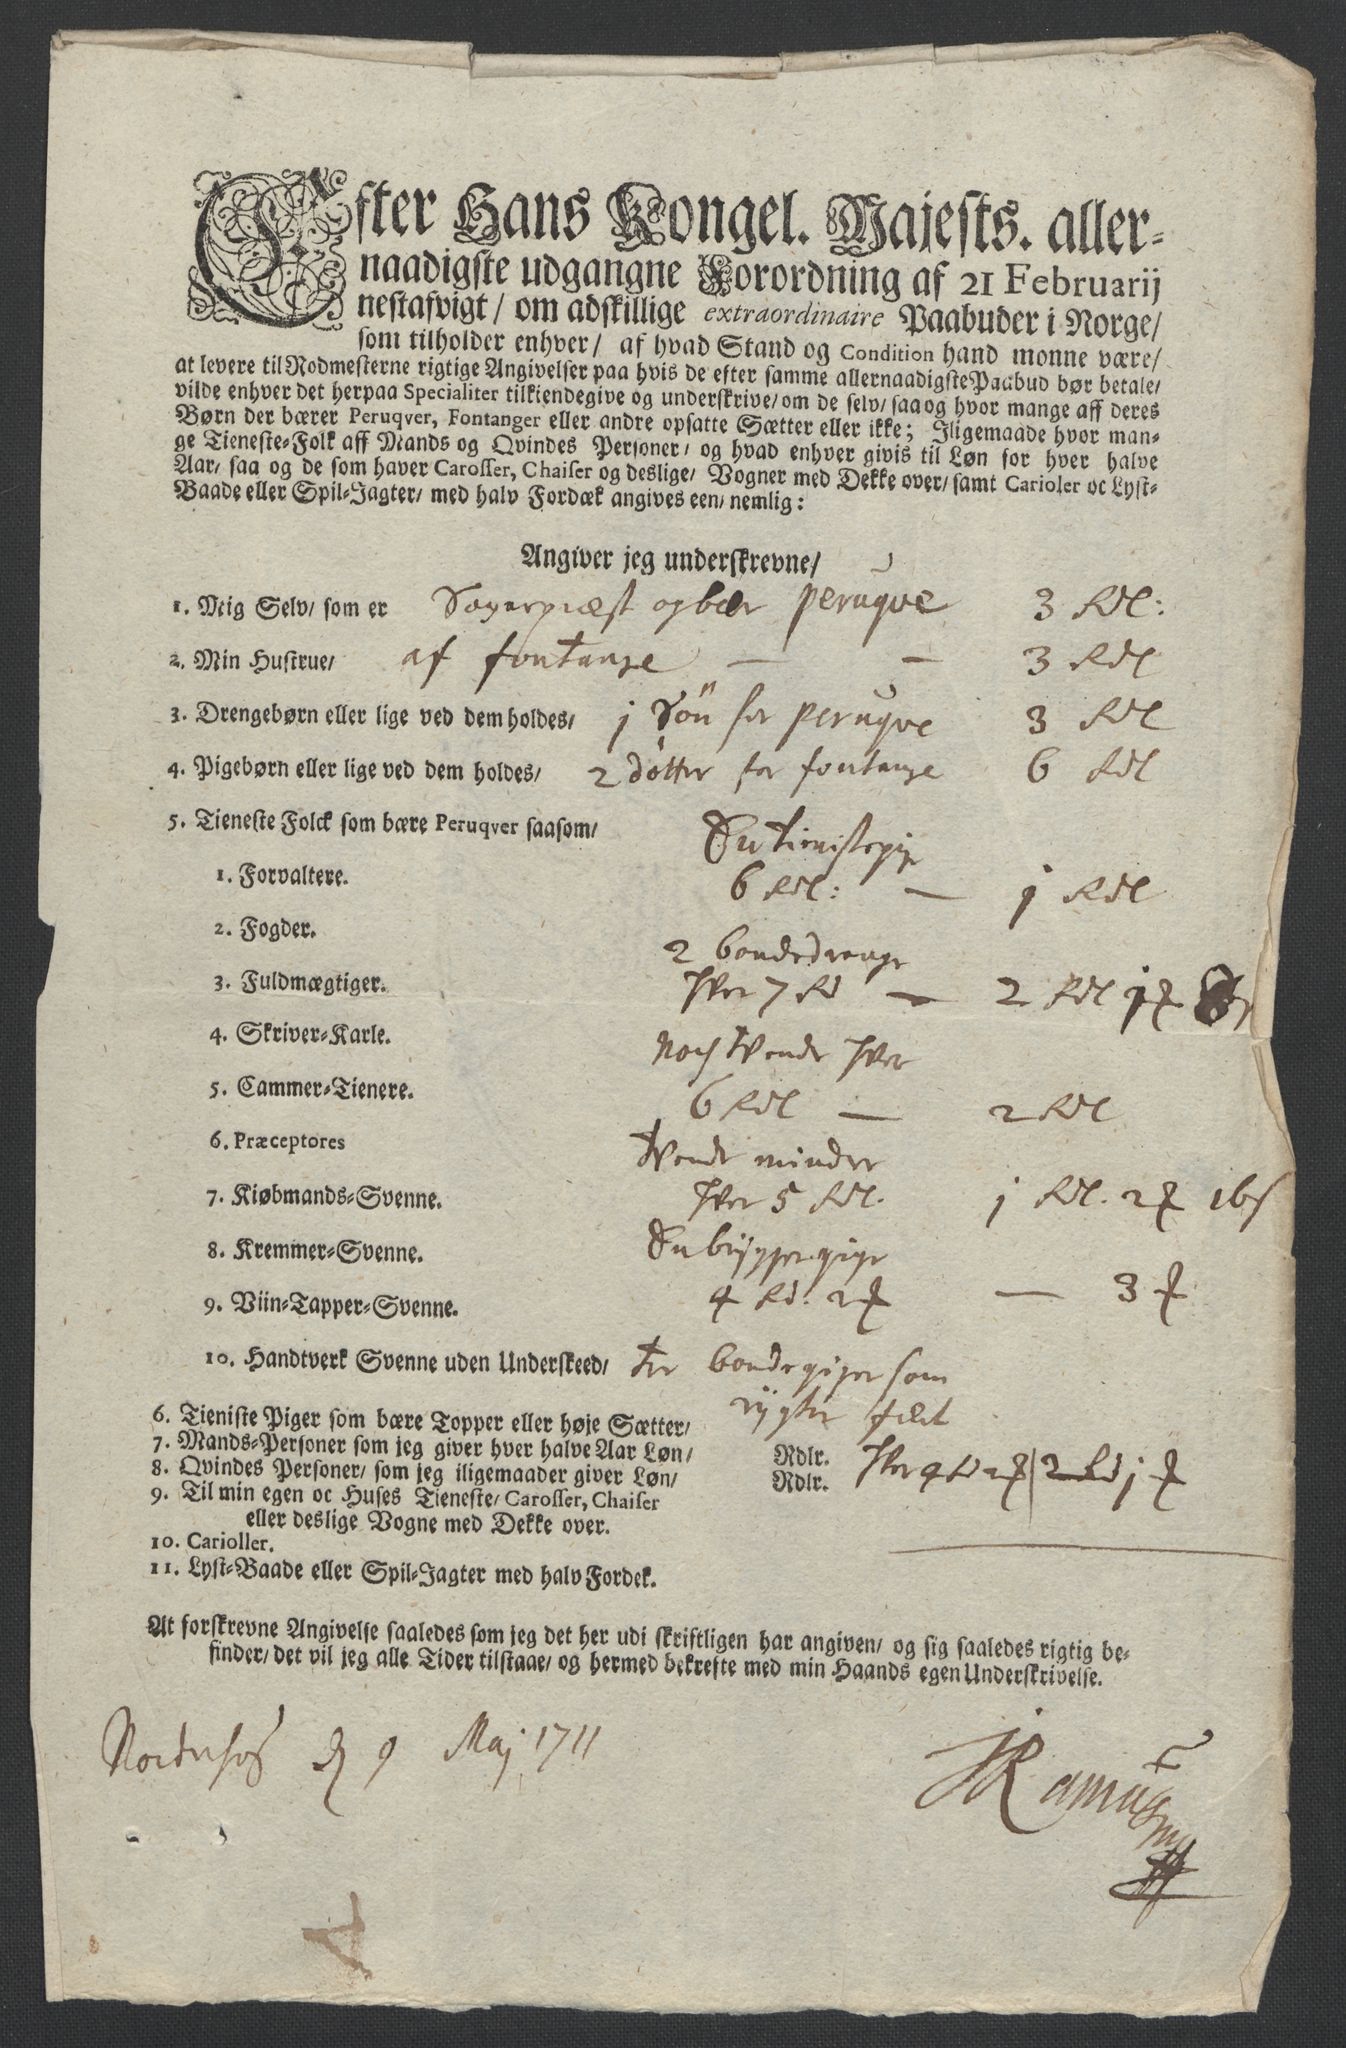 Efter Hans Kongel. Majests. aller-
naadigste udgangne Forordning af 21 Februarij
nestafvigt/ om adskillige extraordinaire Paabuder i Norge/
som tilholder enhver/ af hvad Stand og Condition hand monne være/
at levere til Rodmesterne rigtige Angivelser paa hvis de efter samme allernaadigste Paabud bør betale/
vilde enhver det herpaa Specialiter tilkiendegive og underskrive/ om de selv/ saa og hvor mange aff deres
Børn der bærer Peruqver, Fontanger eller andre opsatte Sætter eller ikke; Iligemaade hvor man-
ge Tieneste-Folk aff Mands og Qvindes Personer/ og hvad enhver givis til Løn for hver halve
Aar/ saa og de som haver Carosser, Chaiser og deslige/ Vogner med Dekke over/ samt Carioler oc Lyst-
Baade eller Spil-Jagter/ med halv Fordæk angives een/ nemlig:
Angiver jeg underskrevne/
1. Mig Selv/ som er Sogneprest og bær peruqve 3 Rdl:
2. Min Hustrue/ af fontange — — 3 Rdl
3. Drengebørn eller lige ved dem holdes/ 1 Søn for peruqve 3 Rdl
4. Pigebørn eller lige ved dem holdes/ 2 døtter for fontange 6 Rdl
5. Tieneste Folck som bære Peruqver saasom/ En tienistepige
1. Forvaltere. 6 Rdl: — 1 Rdl
2. Fogder. 2 bondedrenge
3. Fuldmægtiger. hver 7 Rd — 2 Rdl 1
4. Skriver-Karle. Noch tvende hver
5. Cammer-Tienere. 6 Rdl — 2 Rdl
6. Præceptores tvende mindre
7. Kiøbmands-Svenne. hver 5 Rdl. 1 Rdl. 2 16
8. Kremmer-Svenne. En bryggepige
9. Viin-Tapper-Svenne. 4 Rd. 2 — 3
10. Handtverk Svenne uden Underskeed/ tre bondepiger som
rygter fæet
6. Tieniste Piger som bære Topper eller høje Sætter/
7. Mands-Personer som jeg giver hver halve Aar Løn/ Rdlr. hver 4 Rd 2 2 Rd 1
8. Qvindes Personer/ som jeg iligemaader giver Løn/ Rdlr.
9. Til min egen oc Huses Tieneste/ Carosser, Chaiser
eller deslige Vogne med Dekke over.
10. Carioller.
11. Lyst-Baade eller Spil-Jagter med halv Fordek.
At forskrevne Angivelse saaledes som jeg det her udi skriftligen har angiven/ og sig saaledes rigtig be-
finder/ det vil jeg alle Tider tilstaae/ og hermed bekrefte med min Haands egen Underskrivelse.
Norderhof d 9 Maj 1711
JRamus